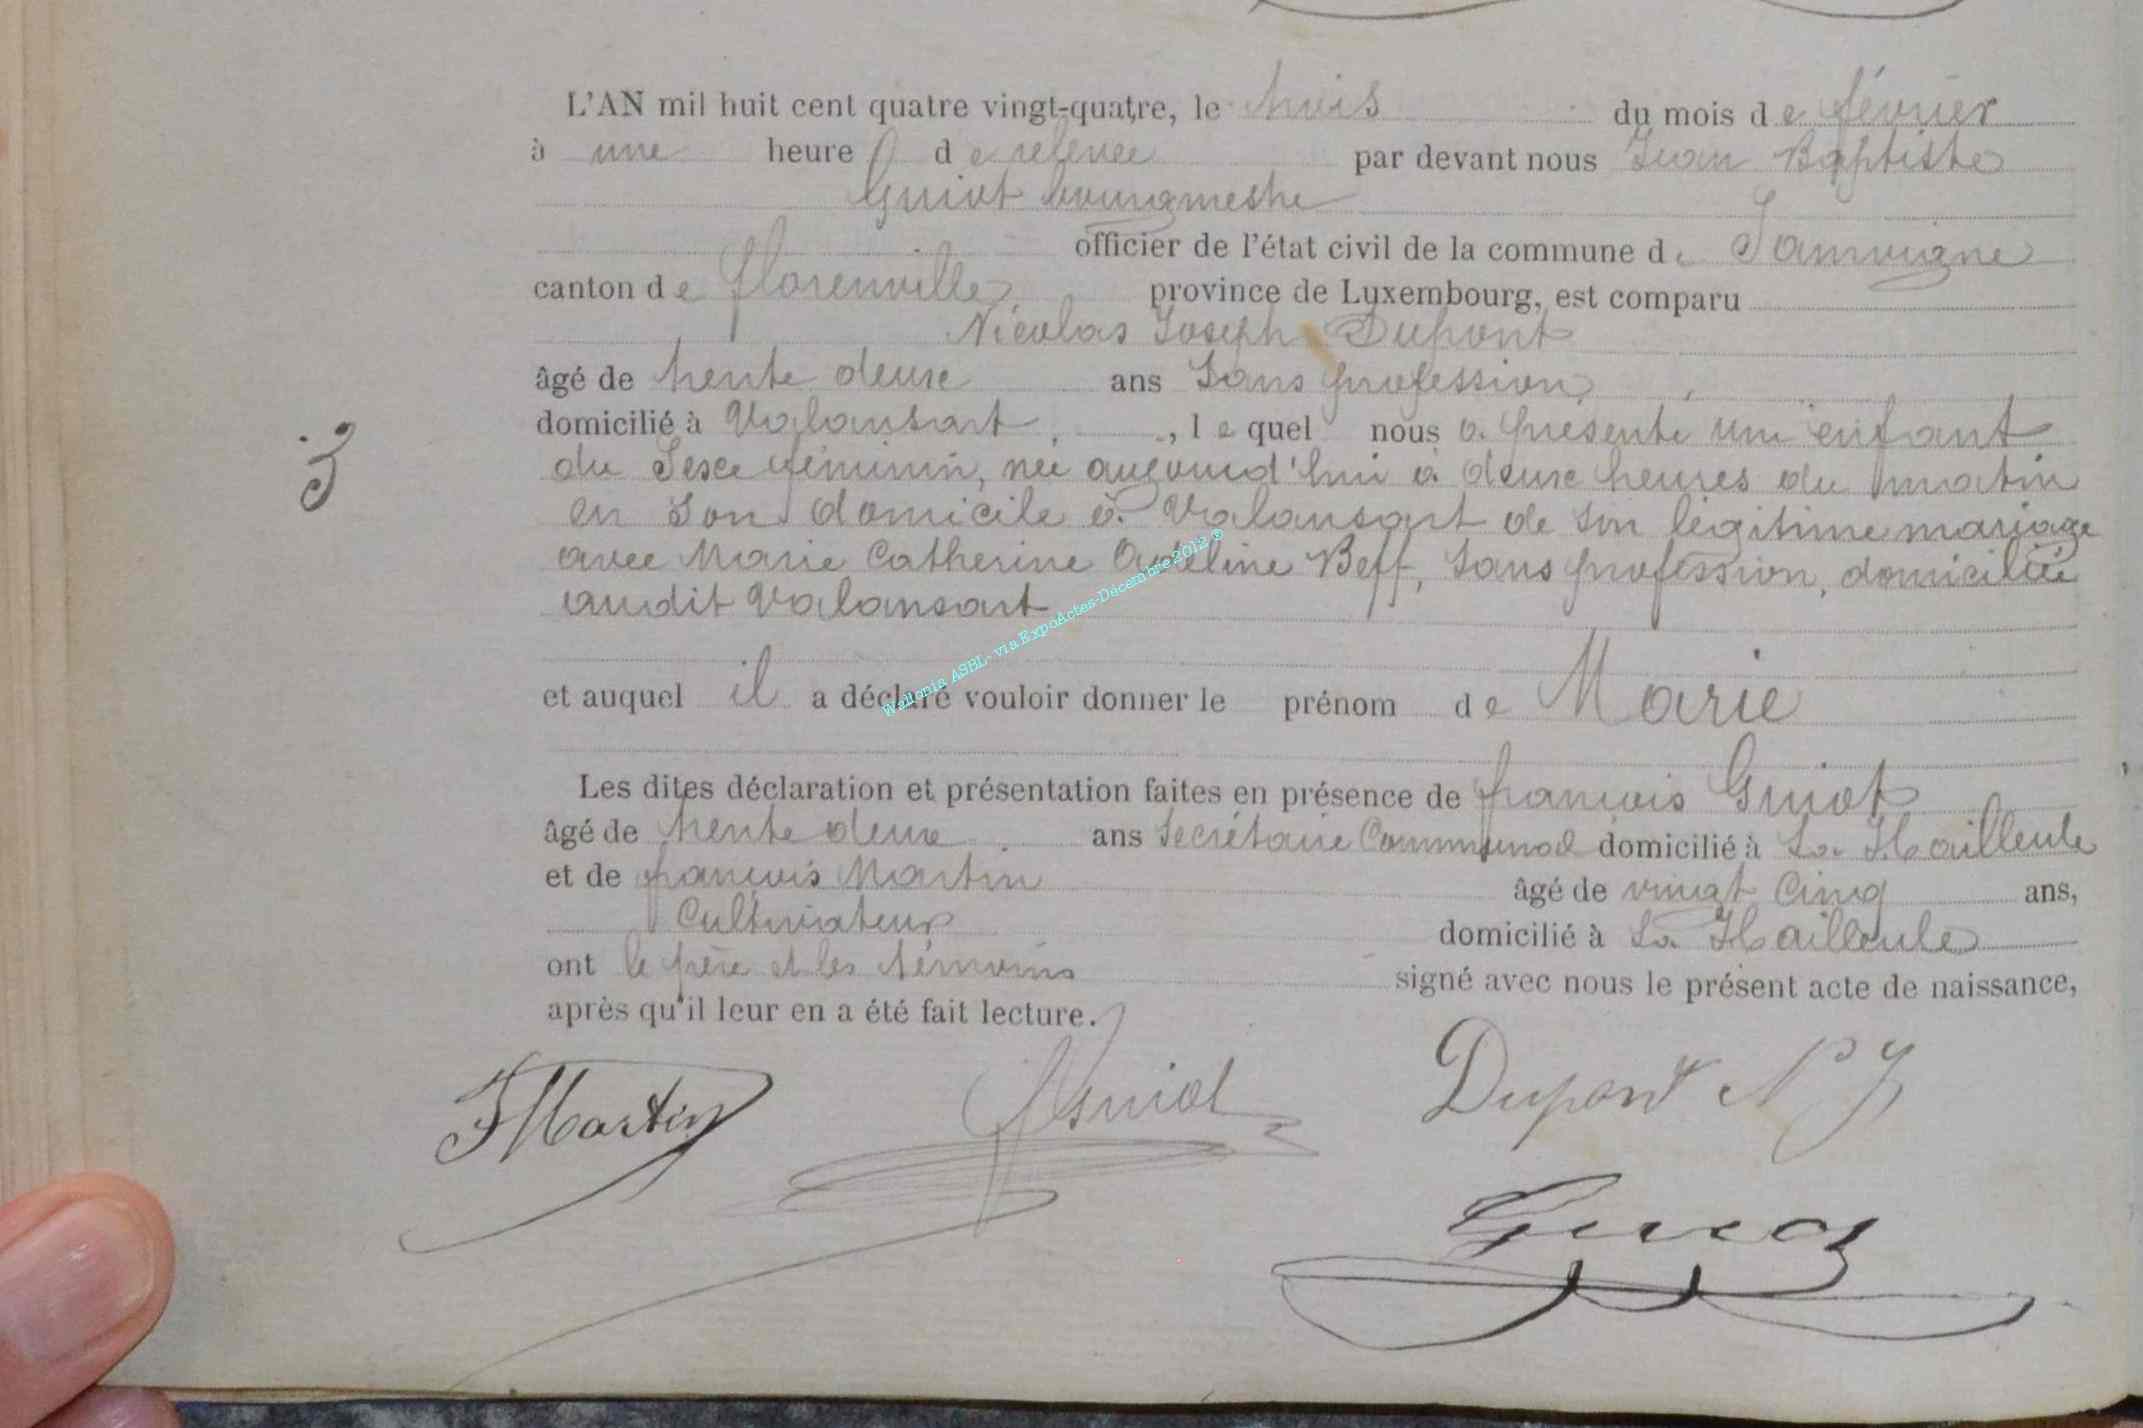 L'AN mil huit cent quatre vingt-quatre, le trois du mois de février
à une heure de relevée par devant nous Jean Baptiste
Guiot bourgmestre
officier de l'état civil de la commune de Jamoigne
canton de florenville province de Luxembourg, est comparu
Nicolas Joseph Dupont
âgé de trente deux ans Sans profession
domicilié à Valansart, , lequel nous a présenté un enfant
du Sexe féminin, née aujourd'hui à deux heures du matin
en Son domicile à Valansart de Son légitime mariage
avec Marie Catherine Adeline Beff, Sans profession, domiciliée
audit Valansart
et auquel il a déclaré vouloir donner le prénom de Marie
Les dites déclaration et présentation faites en présence de françois Guiot
âgé de trente deux ans Secrétaire Communal domicilié à La Hailleule
3
et de françois Martin âgé de vingt Cinq ans,
Cultivateur domicilié à La Hailleule
ont le père et les témoins signé avec nous le présent acte de naissance,
après qu'il leur en a été fait lecture.
FMartin Guiot Dupont N J
Wallonia ASBL- via ExpoActes-Décembre 2012 ©